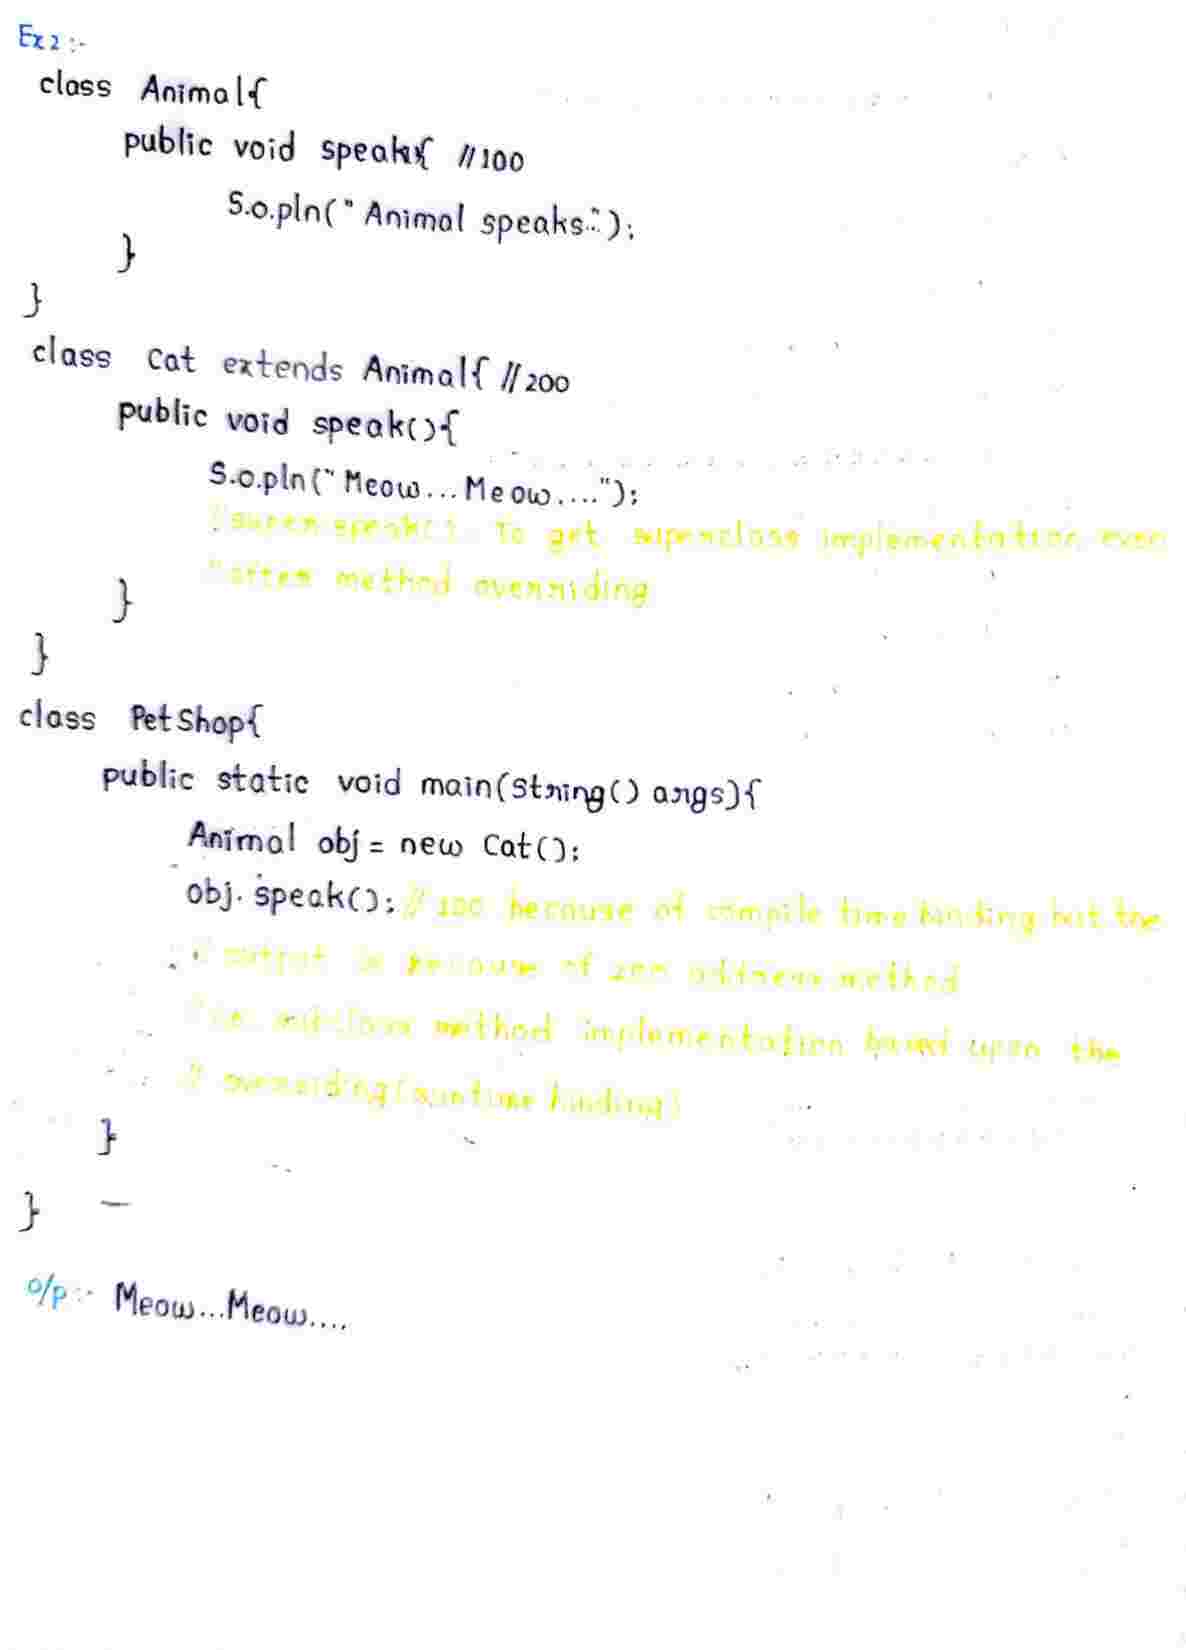 Ex 2 :-
class Animal{
public void speak{ //100
S.o.pln(" Animal speaks.");
}
}
class Cat extends Animal{ //200
public void speak(){
S.o.pln("Meow...Meow....");
//super.speak(); To get superclass implementation even
//after method overriding
}
}
class PetShop{
public static void main(String() args){
Animal obj = new Cat();
obj.speak(); // 100 because of compile time binding but the
// output is because of 200 address method
subclass method implementation based upon the
// overriding(runtime binding)
}
}
o/p :- Meow...Meow....